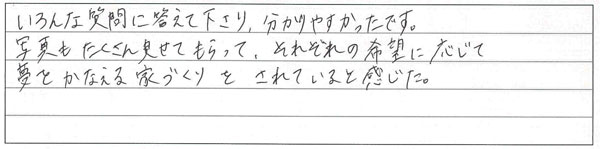 いろんな質問に答えて下さり、分かりやすかったです。
写真もたくさん見せてもらって、それぞれの希望に応じて
夢をかなえる家づくりをされていると感じた。